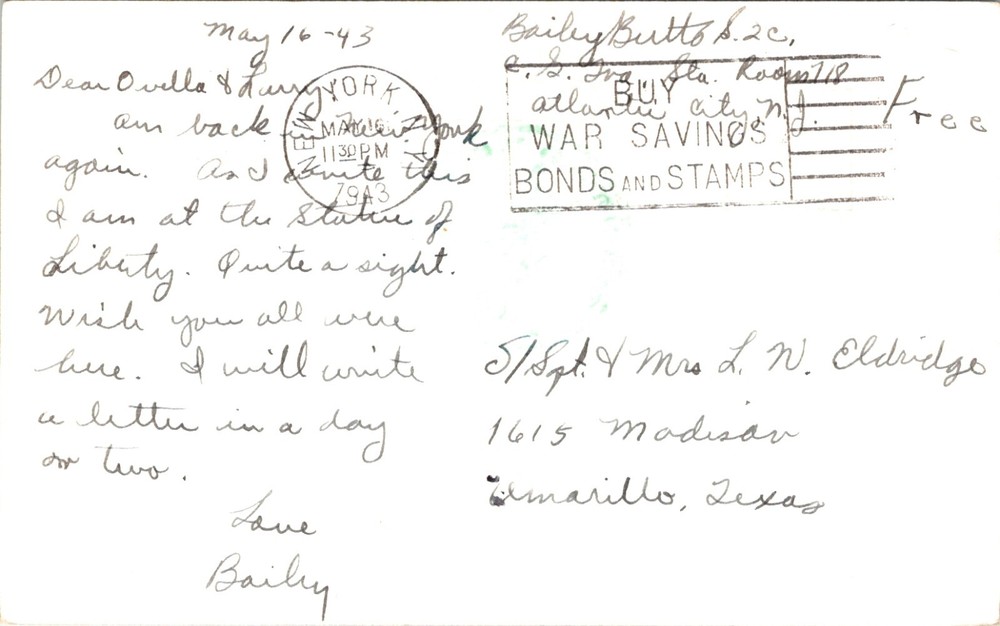 May 16-43
Dear Ovella & Larry
am back in New York
again. As I write this
I am at the Statue of
Liberty. Quite a sight.
Wish you all were
here. I will write
a letter in a day
or two.
Love
Bailey
Bailey Butts S.2c.
C.G. Trg. Sta. Room 718
Atlantic City, N.J.
Free
NEW YORK, N.Y.
MAY 16
1130 PM
1943
BUY
WAR SAVINGS
BONDS AND STAMPS
S/Sgt. & Mrs L. N. Eldridge
1615 Madison
Amarillo, Texas